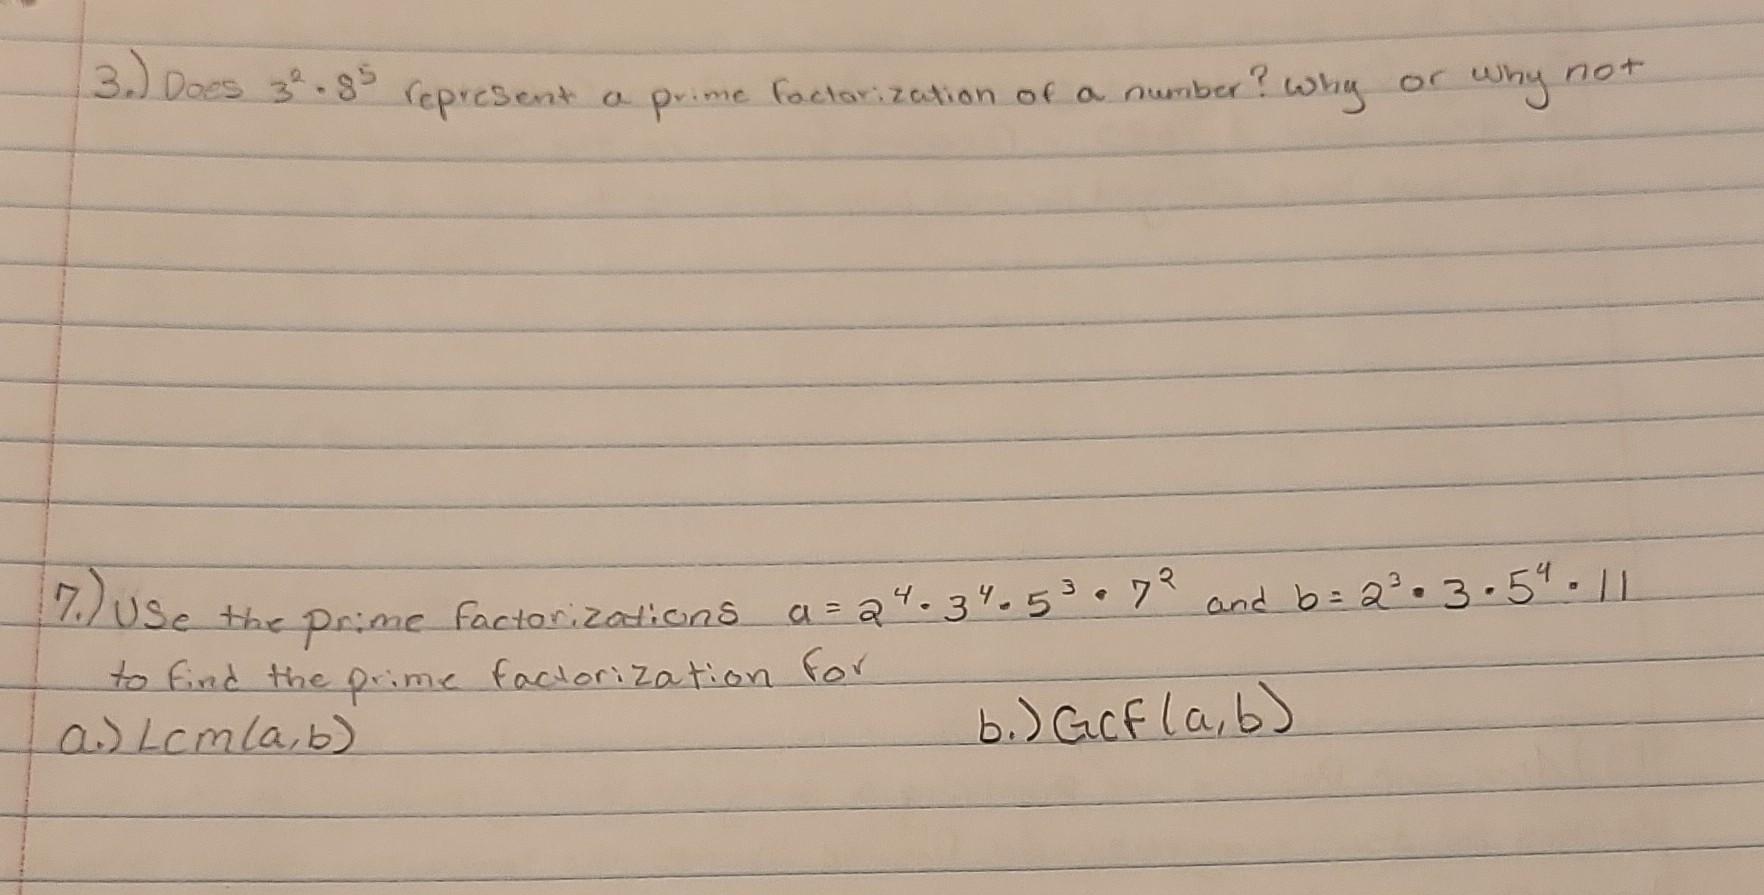 3.) Does 3² · 8⁵ represent a prime factorization of a number? Why or why not
7.) Use the prime factorizations a = 2⁴ · 3⁴ · 5³ · 7² and b = 2³ · 3 · 5⁴ · 11
to find the prime factorization for
a.) Lcm(a,b) b.) GCF(a,b)